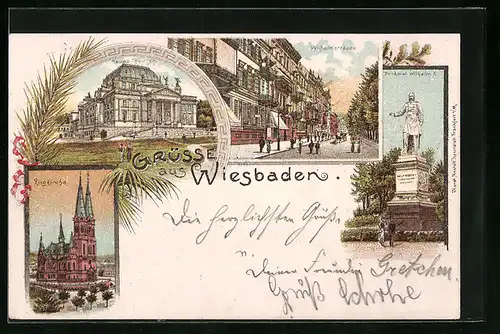 Neues Theater.
Wilhelmstrasse.
Denkmal Wilhelm I.
GRÜSSE
aus Wiesbaden.
Ringkirche.
Die herzlichsten Grüße,
Deiner Freundin Gretchen
Gruß